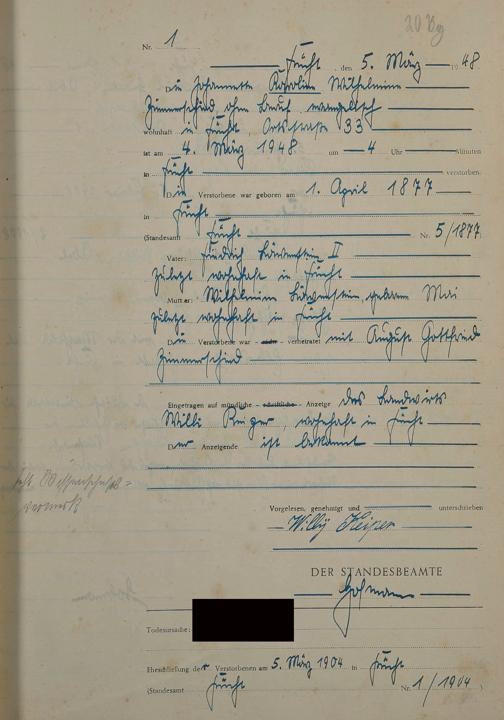 Nr. 1
Frücht, den 5. März 1948
Die Johannette Karoline Wilhelmine
Zimmerschied ohne Beruf, evangelisch
wohnhaft in Frücht, Ortsstraße 33
ist am 4. März 1948 um 4 Uhr Minuten
in Frücht verstorben.
Die Verstorbene war geboren am 1. April 1877
in Frücht
(Standesamt Frücht Nr. 5/1877
Vater: Friedrich Löwenstein II
zuletzt wohnhaft in Frücht
Mutter: Wilhelmine Löwenstein, geboren Mai
zuletzt wohnhaft in Frücht
Die Verstorbene war nicht verheiratet mit August Gottfried
Zimmerschied
Eingetragen auf mündliche – schriftliche – Anzeige des Landwirts
Willi, wohnhaft in Frücht
Der Anzeigende ist bekannt
vermerk
Vorgelesen, genehmigt und unterschrieben
Willy
DER STANDESBEAMTE
Hofmann
Todesursache:
Eheschließung der Verstorbenen am 5. März 1904 in Frücht
(Standesamt Frücht Nr. 1/1904)